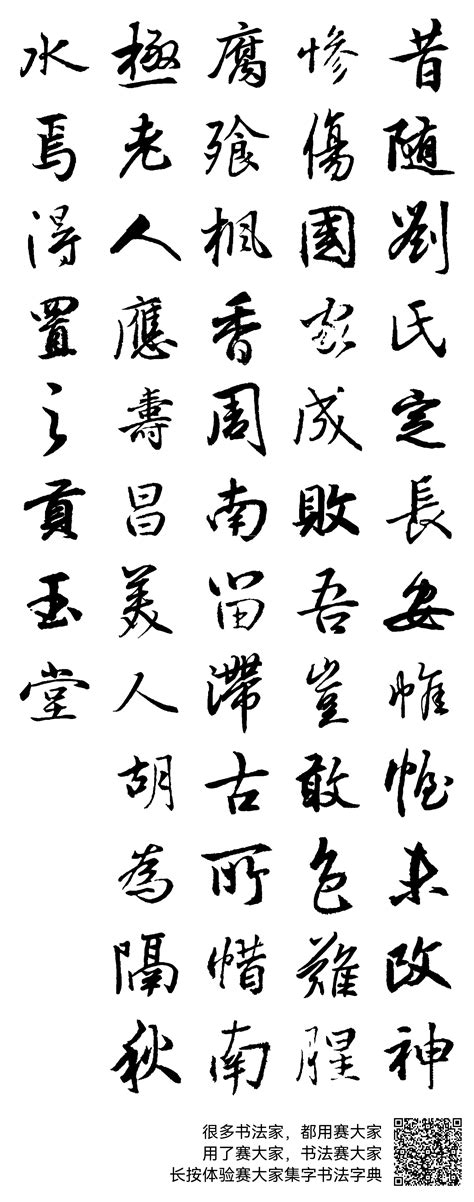 昔随劉氏定長安帷幄未改神
慘傷國家成敗吾豈敢色難腥
腐飱楓香周南留滯古所惜南
極老人應壽昌美人胡為隔秋
水焉得置之貢玉堂
很多书法家，都用赛大家
用了赛大家，书法赛大家
长按体验赛大家集字书法字典